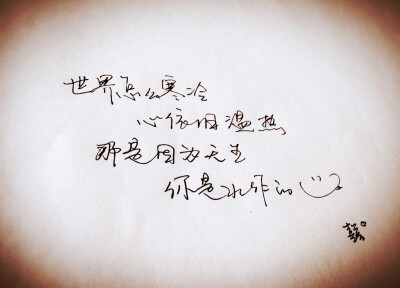 世界怎么寒冷
心依旧温热
那是因为天生
你是水作的